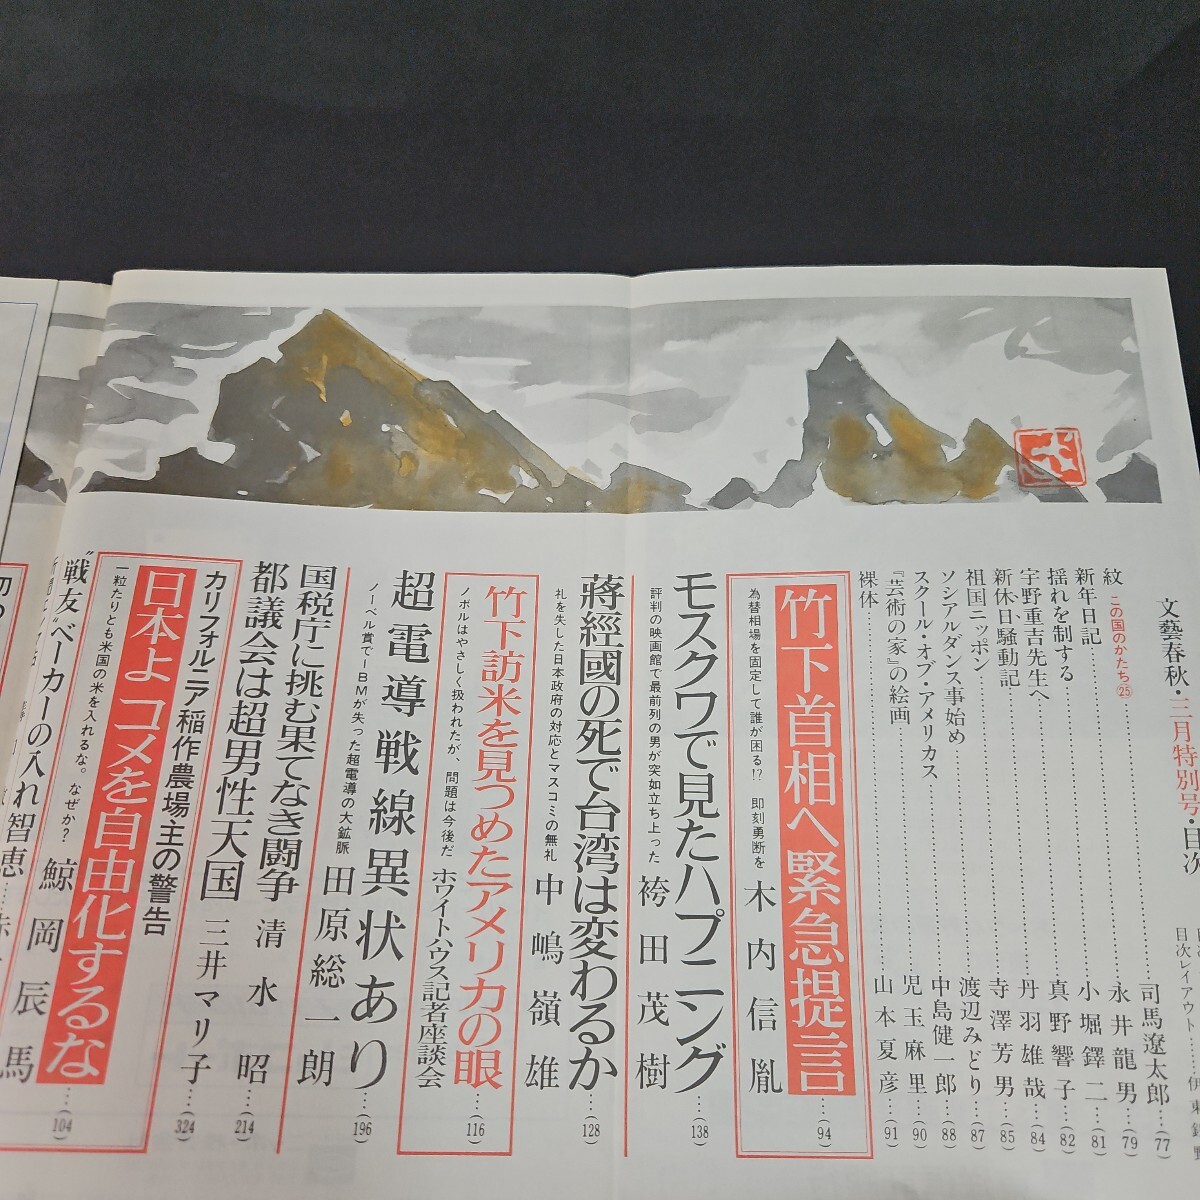 文藝春秋・三月特別号・目次
目次レイアウト……伊
紋 この国のかたち㉕……司馬遼太郎…(77)
新年日記……永井龍男…(79)
揺れを制する……小堀鐸二…(81)
宇野重吉先生へ……真野響子…(82)
新休日騒動記……丹羽雄哉…(84)
祖国ニッポン……寺澤芳男…(85)
ソシアルダンス事始め……渡辺みどり…(87)
スクール・オブ・アメリカス……中島健一郎…(88)
『芸術の家』の絵画……児玉麻里…(90)
裸体……山本夏彦…(91)
竹下首相へ緊急提言…(94)
為替相場を固定して誰が困る!? 即刻勇断を 木内信胤
モスクワで見たハプニング…(138)
評判の映画館で最前列の男が突如立ち上った 袴田茂樹
蔣經國の死で台湾は変わるか…(128)
礼を失した日本政府の対応とマスコミの無礼 中嶋嶺雄
竹下訪米を見つめたアメリカの眼…(116)
ノボルはやさしく扱われたが、問題は今後だ ホワイトハウス記者座談会
超電導戦線異状あり…(196)
ノーベル賞でIBMが失った超電導の大鉱脈 田原総一朗
国税庁に挑む果てなき闘争 清水昭…(214)
都議会は超男性天国 三井マリ子…(324)
カリフォルニア稲作農場主の警告
日本よ コメを自由化するな…(104)
一粒たりとも米国の米を入れるな。なぜか? 鯨岡辰馬
"戦友"ベーカーの入れ智恵……